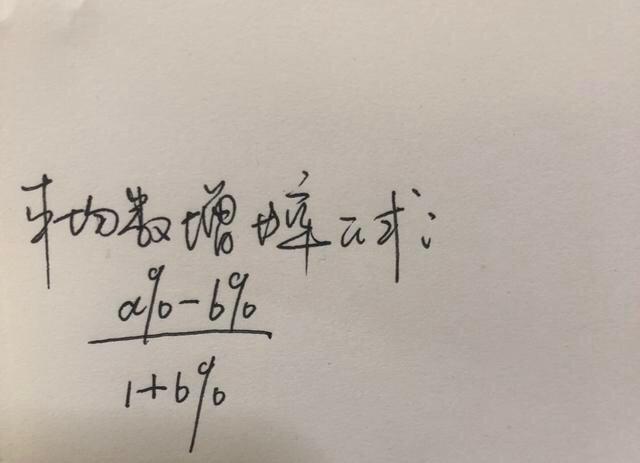 平均数增长率公式:
a%-b%
1+b%